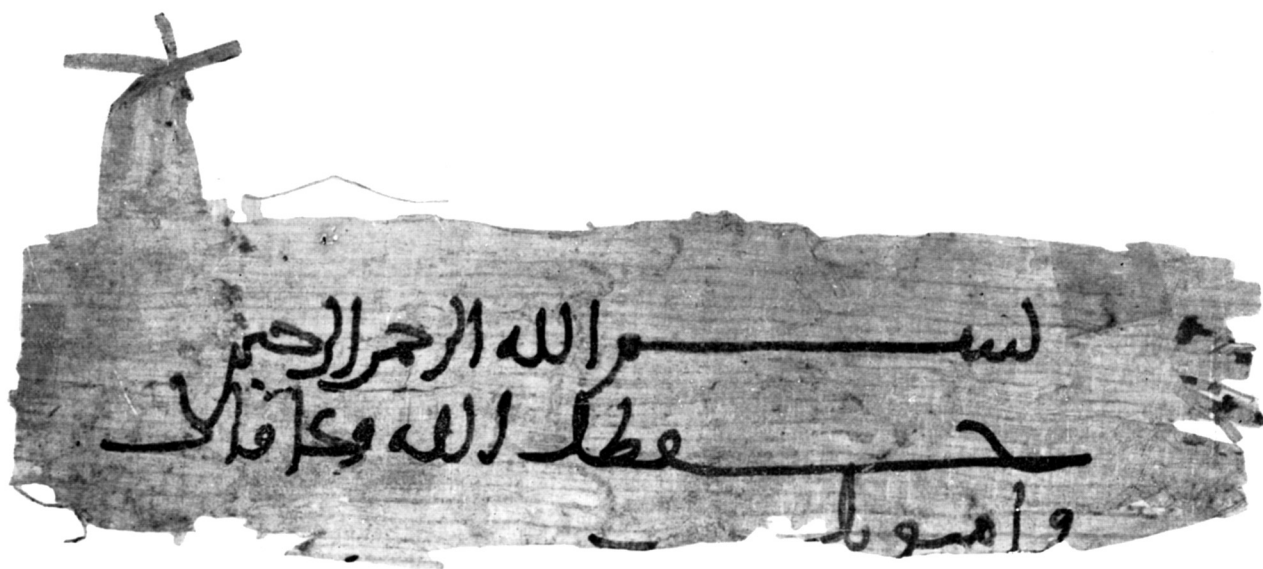 بسم الله الرحمن الرحيم
حفظك الله وعافاك